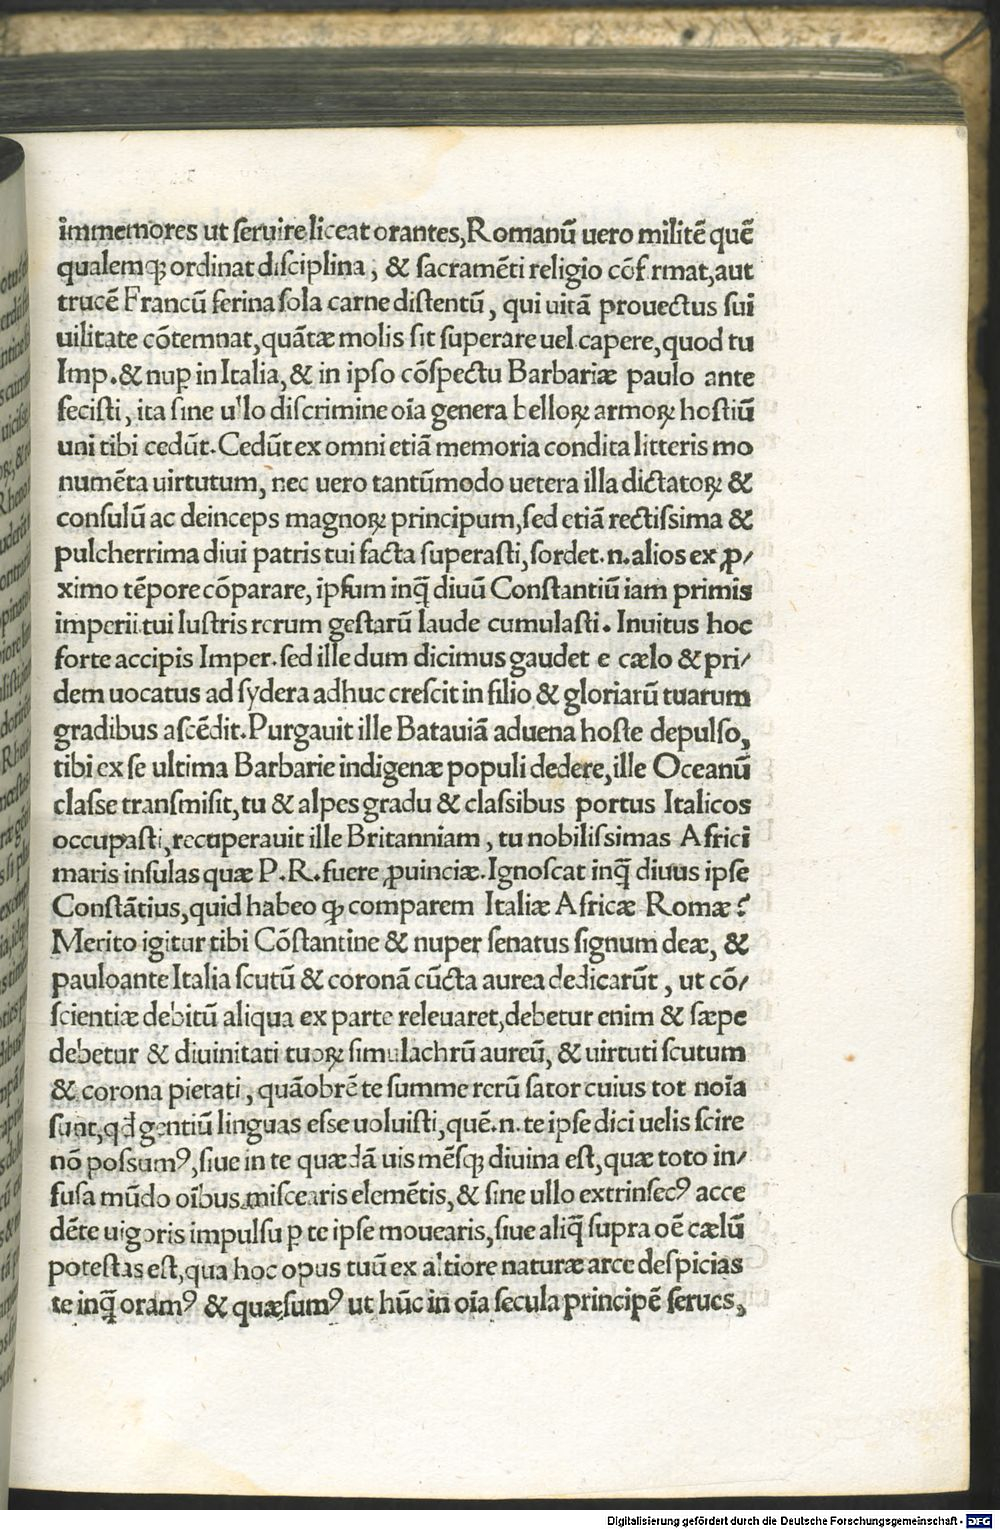 immemores ut ſeruire liceat orantes, Romanũ uero militẽ quẽ
qualemqꝫ ordinat diſciplina, & ſacramẽti religio cõf rmat, aut
trucẽ Francũ ferina ſola carne diſtentũ, qui uitã prouectus ſui
uilitate cõtemnat, quãtæ molis ſit ſuperare uel capere, quod tu
Imp. & nuꝑ in Italia, & in ipſo cõſpectu Barbariæ paulo ante
feciſti, ita ſine ullo diſcrimine oĩa genera belloꝝ armoꝝ hoſtiũ
uni tibi cedũt. Cedũt ex omni etiã memoria condita litteris mo
numẽta uirtutum, nec uero tantũmodo uetera illa dictatoꝝ &
conſulũ ac deinceps magnoꝝ principum, ſed etiã rectiſſima &
pulcherrima diui patris tui facta ſuperaſti, ſordet. n. alios ex ꝓ/
ximo tẽpore cõparare, ipſum inq̃ diuũ Conſtantiũ iam primis
imperii tui luſtris rerum geſtarũ laude cumulaſti. Inuitus hoc
forte accipis Imper. ſed ille dum dicimus gaudet e cælo & pri/
dem uocatus ad ſydera adhuc creſcit in filio & gloriarũ tuarum
gradibus aſcẽdit. Purgauit ille Batauiã aduena hoſte depulſo,
tibi ex ſe ultima Barbarie indigenæ populi dedere, ille Oceanũ
claſſe tranſmiſit, tu & alpes gradu & claſſibus portus Italicos
occupaſti, recuperauit ille Britanniam, tu nobiliſſimas Africi
maris inſulas quæ P. R. fuere ꝓuinciæ. Ignoſcat inq̃ diuus ipſe
Conſtãtius, quid habeo qꝫ comparem Italiæ Africæ Romæ?
Merito igitur tibi Cõſtantine & nuper ſenatus ſignum deæ, &
pauloante Italia ſcutũ & coronã cũcta aurea dedicarũt, ut cõ/
ſcientiæ debitũ aliqua ex parte releuaret, debetur enim & ſæpe
debetur & diuinitati tuoꝝ ſimulachrũ aureũ, & uirtuti ſcutum
& corona pietati, quãobrẽ te ſumme rerũ ſator cuius tot noĩa
ſunt, qd̃ gentiũ linguas eſſe uoluiſti, quẽ. n. te ipſe dici uelis ſcire
nõ poſſumꝰ, ſiue in te quædã uis mẽſqꝫ diuina eſt, quæ toto in/
fuſa mũdo oĩbus miſcearis elemẽtis, & ſine ullo extrinſecꝰ acce
dẽte uigoris impulſu ꝑ te ipſe mouearis, ſiue aliq̃ ſupra oẽ cælũ
poteſtas eſt, qua hoc opus tuũ ex altiore naturæ arce deſpicias
te inq̃ oramꝰ & quæſumꝰ ut hũc in oĩa ſecula principẽ ſerues,
Digitalisierung gefördert durch die Deutsche Forschungsgemeinschaft - DFG